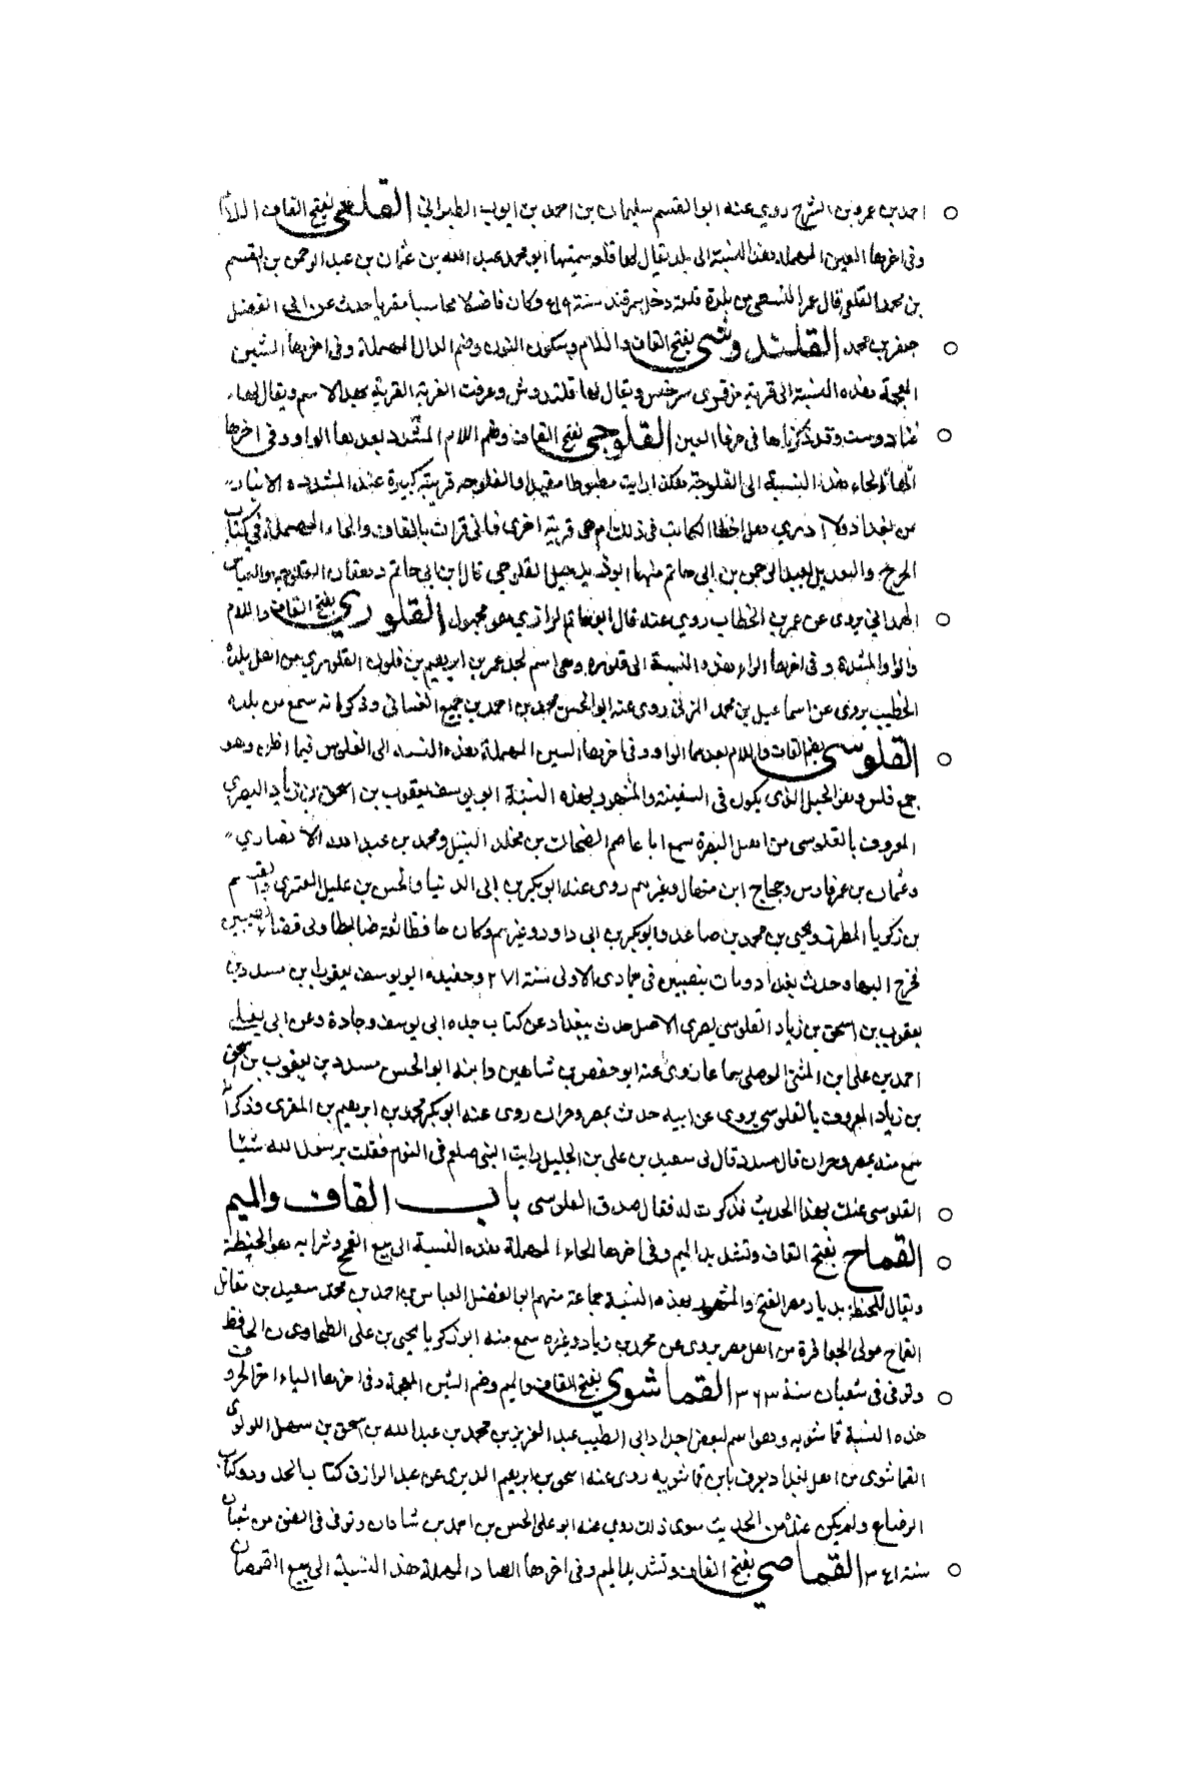 احمد بن عمرو بن السرح روى عنه ابو القسم سليمان بن احمد بن ايوب الطبراني القلعي بفتح القاف اللام
وفى اخرها العين المهملة هذه النسبة الى بلد يقال لها قلعة منها ابو محمد عبد الله بن عثمان بن عبد الرحمن بن القسم
بن محمد القلعي قال عمر النسفي من بلدة قلعة دخل سمرقند سنة وكان فاضلا محاسبا مقريا حدث عن ابى الفضل
جعفر بن محمد القلندوشي بفتح القاف واللام وسكون النون وضم الدال المهملة وفى اخرها الشين
المعجمة هذه النسبة الى قرية من قرى سرخس ويقال لها قلندوش وعرفت القرية القريبة بهذا الاسم ويقال لها
وقد ذكرناها فى حرف العين القلوجي بفتح القاف وضم اللام المشدد بعدها الواو وفى اخرها
الحاء هذه النسبة الى القلوجة هكذا رايت مضبوطا مقيدا والفلوجه قرية كبيرة عند الانبار
من بغداد ولا ادري هل اخطا الكاتب فى ذلك ام هى قرية اخرى فانى قرات بالقاف والحاء المهملة فى كتاب
الجرح والتعديل لعبد الرحمن بن ابى حاتم منها القلوجي قال ابن ابى حاتم دهقان الفلوجه
الهمداني يروى عن عمر بن الخطاب روى عنه قال ابو حاتم الرازي هو مجهول القلوري بفتح القاف واللام
والواو المشددة وفى اخرها الراء هذه النسبة الى قلوره وهى اسم لجد عمر بن ابرهيم بن قلوره القلوري من اهل بلدة
الخطيب يروى عن اسماعيل بن محمد المزنى روى عنه ابو الحسن محمد بن احمد بن جميع الغسانى وذكر انه سمع من بلده
القلوسي بضم القاف واللام بعدهما الواو وفى اخرها السين المهملة هذه النسبة الى القلوس فيما اظن وهو
جمع قلس وهو الحبل الذى يكون فى السفينة والمشهور بهذه النسبة ابو يوسف يعقوب بن اسحق بن زياد البصري
المعروف بالقلوسى من اهل البصرة سمع ابا عاصم الضحاك بن مخلد النبيل ومحمد بن عبد الله الانصاري
وعثمان بن عمر فارس وحجاج ابن منهال وغيرهم روى عنه ابو بكر بن ابى الدنيا والحسن بن عليل العنزى والقسم
بن زكريا المطرز ويحيى بن محمد بن صاعد وابو بكر بن ابى داود وغيرهم وكان حافظا ثقة ضابطا ولى قضا نصيبين
فخرج اليها وحدث ببغداد ومات بنصيبين فى جمادى الاولى سنة ٢٧١ وحفيده ابو يوسف يعقوب بن مسدد بن
يعقوب بن اسحق بن زياد القلوسى بصرى الاصل حدث ببغداد عن كتاب جده ابى يوسف وجادة وعن ابى يعلى
احمد بن على ابن المثنى الموصلى سماعا روى عنه ابو حفص بن شاهين وابنه ابو الحسن مسدد بن يعقوب بن اسحق
بن زياد المعروف بالقلوسى يروى عن ابيه حدث بمصر وحران روى عنه ابو بكر محمد بن ابرهيم بن المقرى وذكر انه
سمع منه بمصر وحران قال مسدد قال لى سعيد بن على بن الجليل رايت النبى صلعم فى النوم فقلت يرسول الله شيئا
القلوسى عنك بهذا الحديث فذكرت له فقال صدق القلوسى باب القاف والميم
القماح بفتح القاف وتشديد الميم وفى اخرها الحاء المهملة هذه النسبة الى بيع القمح وشرايه هو الحنطة
ويقال للحنطة بديار مصر القمح والمشهور بهذه النسبة جماعة منهم ابو الفضل العباس بن احمد بن محمد سعيد بن مقاتل
القماح مولى المعافرة من اهل مصر يروى عن محمد بن زياد وغيره سمع منه ابو زكريا يحيى بن على الطحاوى بن الحافظ
وتوفى فى شعبان سنة ٣٦٣ القماشوي بفتح القاف والميم وضم الشين المعجمة وفى اخرها الياء اخر الحروف
هذه النسبة قماشويه وهو اسم لبعض اجداد ابى الطيب عبد العزيز بن محمد بن عبد الله بن اسحق بن سهل اللولوى
القماشوى من اهل بغداد يعرف بابن قماشويه روى عنه اسحق بن ابرهيم الدبرى عن عبد الرازق كتاب الحدود وكتاب
الرضاع ولم يكن عنده من الحديث سوى ذلك روى عنه ابو على الحسن بن احمد بن شاذان وتوفى فى النصف من شعبان
سنة ٣٤١ القماصي بفتح القاف وتشديد الميم وفى اخرها الصاد المهملة هذه النسبة الى بيع القمصان